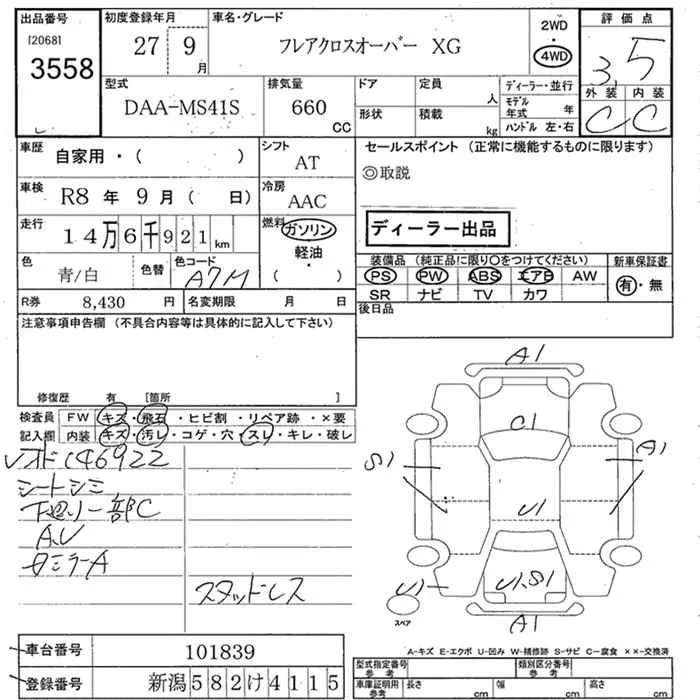 出品番号 初度登録年月 車名・グレード 2WD 評価点
[2068] 27 9 月 フレアクロスオーバー XG ・ 4WD 3.5
3558
型式 排気量 ドア 定員 人 ディーラー・並行 外装 内装
DAA-MS41S 660 CC 形状 積載 kg モデル年式 年 C C
ハンドル 左・右
車歴 自家用・( ) シフト AT セールスポイント (正常に機能するものに限ります)
◎取説
車検 R8 年 9 月 ( 日) 冷房 AAC
走行 14万6千921 km 燃料 ガソリン ディーラー出品
軽油
・
( )
色 青/白 色替 色コード A7M
装備品 (純正品に限り○をつけてください) 新車保証書
PS PW ABS エアB AW 有・無
SR ナビ TV カワ
R券 8,430 円 名変期限 月 日 後日品
注意事項申告欄 (不具合内容等は具体的に記入して下さい)
修復歴 有 [箇所 ]
検査員 FW キズ・飛石・ヒビ割・リペア跡・×要
記入欄 内装 キズ・汚レ・コゲ・穴・スレ・キレ・破レ
146922
シートシミ
下廻リ一部C
A.U
スタッドレス
A1
C1
S1
A1
U1
U1
U1.S1
A1
スペア
A-キズ E-エクボ U-凹み W-補修跡 S-サビ C-腐食 ××-交換済
車台番号 101839
登録番号 新潟582け4115
型式指定番号 参考 類別区分番号 参考
車庫証明用 参考 長さ cm 幅 cm 高さ cm